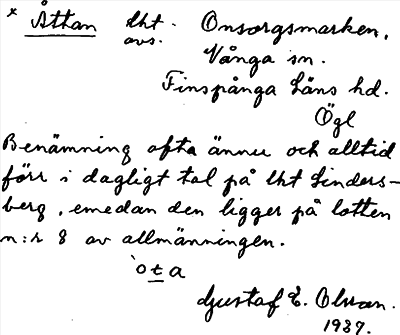 × Åttan lht. Onsorgsmarken,
avs.
Vånga sn.
Finspånga Läns hd.
Ögl
Benämning ofta ännu och alltid
förr i dagligt tal på lht Linders-
berg, emedan den ligger på lotten
n:r 8 av allmänningen.
`ota
Gustaf E. Olsson.
1937.